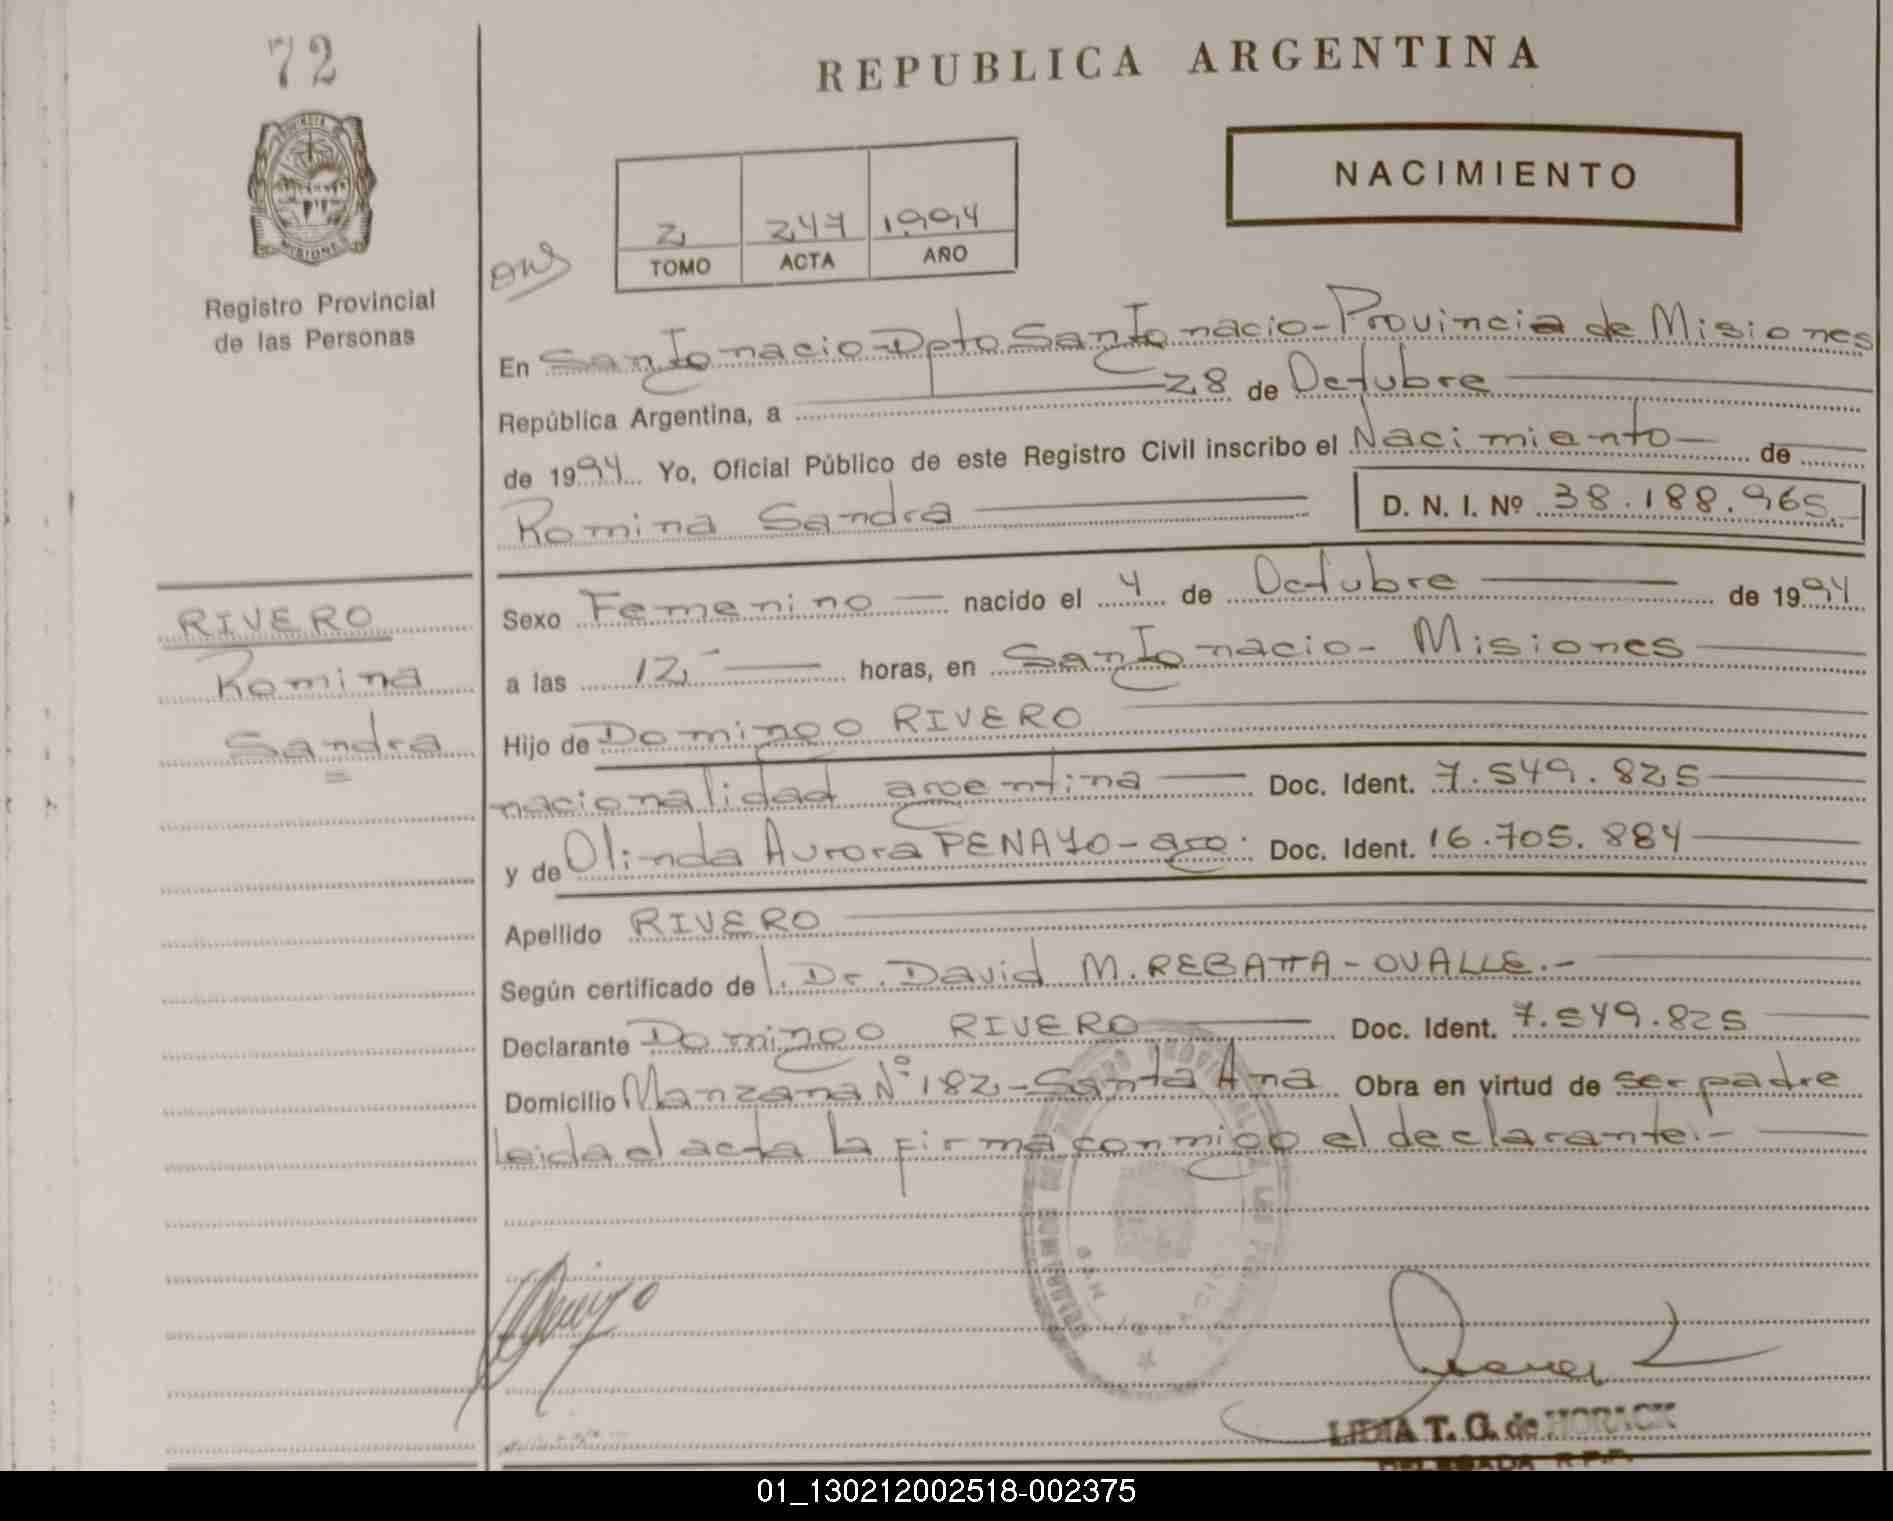 72
REPUBLICA ARGENTINA
NACIMIENTO
2 247 1994
TOMO ACTA AÑO
Registro Provincial
de las Personas
En San Ignacio - Dpto San Ignacio - Provincia de Misiones
República Argentina, a 28 de Octubre
de 1994 Yo, Oficial Público de este Registro Civil inscribo el Nacimiento de
Romina Sandra D. N. I. Nº 38.188.965.
RIVERO
Romina
Sandra
Sexo Femenino nacido el 4 de Octubre de 1994
a las 12,- horas, en San Ignacio - Misiones
Hijo de Domingo RIVERO
nacionalidad argentina Doc. Ident. 7.549.825
y de Olinda Aurora PENAYO - arg. Doc. Ident. 16.705.884
Apellido RIVERO
Según certificado de l. Dr. David M. REBATTA - OVALLE.-
Declarante Domingo RIVERO Doc. Ident. 7.549.825
Domicilio Manzana Nº 182 - Santa Ana Obra en virtud de ser padre
leida el acta la firma conmigo el declarante.-
LIDIA T. G. de HORACK
DELEGADA R.P.P.
01_130212002518-002375